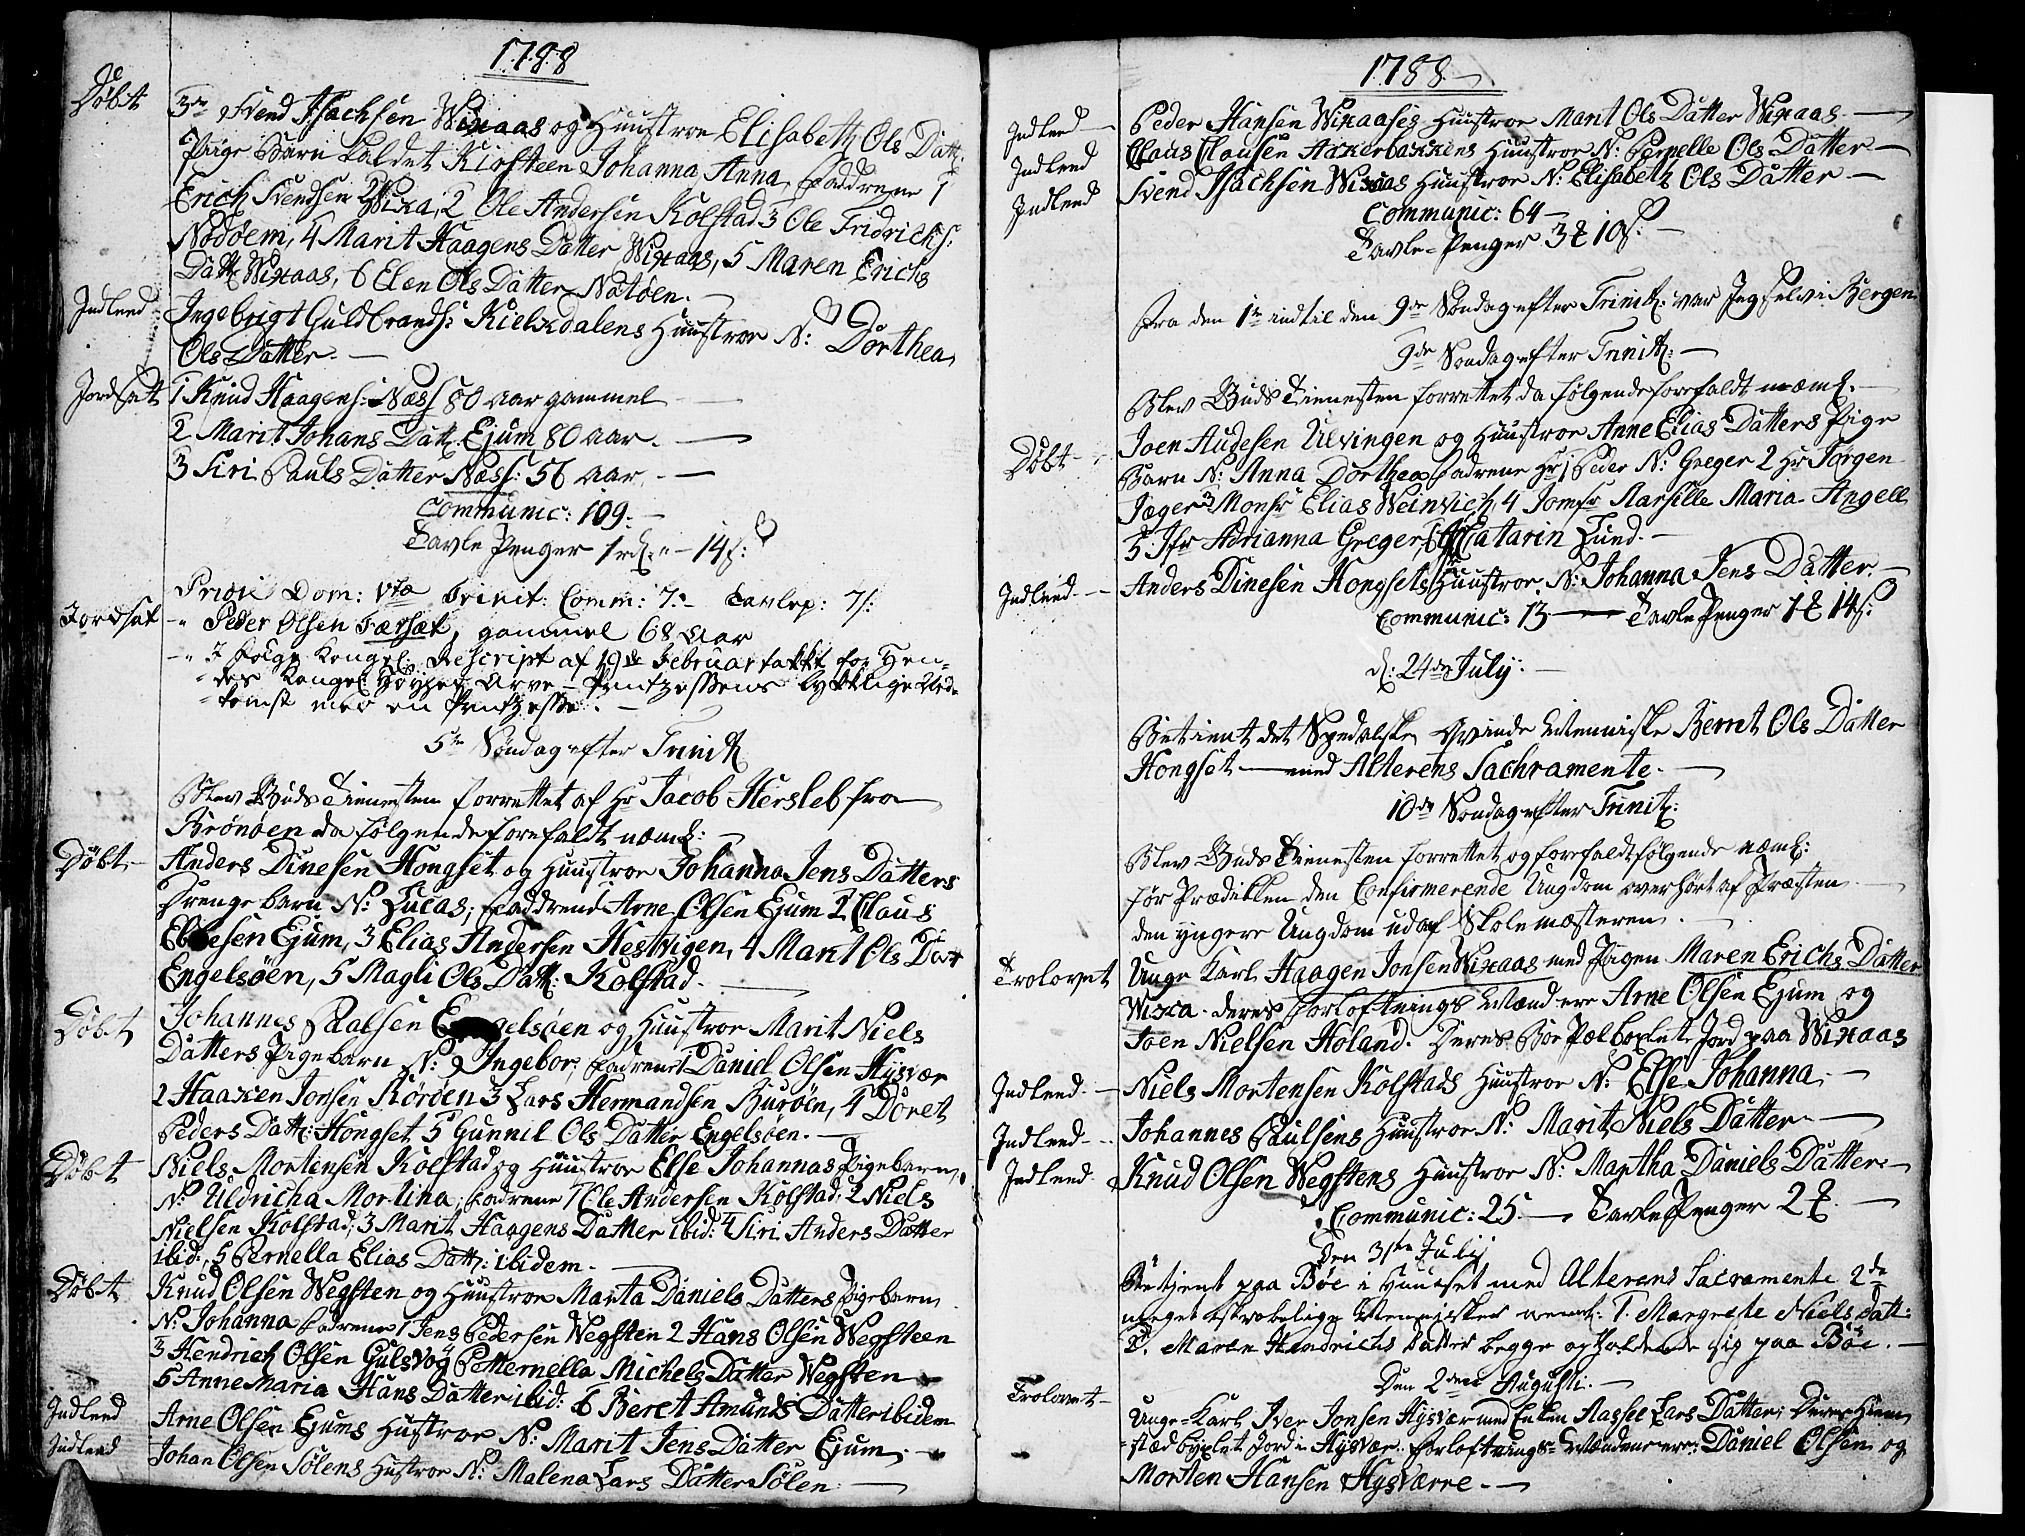 1788
Döbt 3de Svend Isachsen Wixaas og Huustroe Elisabeth Ols Datt:
Piige Barn kaldet Kirsteen Johanna Anna, Faddrene 1
Erich Svendsen Wixa, 2 Ole Andersen Kolstad 3 Ole Fridrichs:
Nödöem, 4 Marit Haagens Datter Wixaas, 5 Maren Erichs
Datt: Wixaas, 6 Elen Ols Datter Natöen.
Indleed Ingebrigt Guldbrands: Kielxdalens Huustroe N: Dorthea
Ols Datter.
Jordsat 1 Knud Haagens: Næss 80 aar gammel
2 Marit Johans Datt: Ejum 80 aar.
3 Siri Pauls Datter Næss: 56 aar.
Communic: 109.
Tavle Penger 1 rd: " 14 s:
Dom: Vta Trinit: Comm: 7. Tavlep: 7 s:
Jordsat Peder Olsen Færsæt, gammel 68 aar
Følge Kongel: Rescript af 19de Februar takket for Hen-
des Kongel: Höyhed Arve-Printzessens lykkelige Ned-
komst med en Printzesse.
5te Söndag efter Trinit:
Blev Guds Tienesten forrettet af Hr Jacob Hersleb fra
Brönöen da fölgende forefaldt næml:
Döbt Anders Dinesen Hongset og Huustroe Johanna Jens Datters
Drenge barn N: Lucas; Faddrene 1 Arne Olsen Ejum 2 Claus
Ebbesen Ejum, 3 Elias Andersen Hestvigen, 4 Marit Ols Datt
Engelsöen, 5 Magli Ols Datt: Kolstad.
Döbt Johannes Paalsen Engelsöen og Huustroe Marit Niels
Datters Pigebarn N: Ingebor; Fadrene 1 Daniel Olsen Hysvær
2 Haaxen Jonsen Röröen 3 Lars Hermandsen Buröen, 4 Doret
Peders Datt: Hongset 5 Gunnil Ols Datter Engelsöen.
Döbt Niels Mortensen Kolstad og Huustroe Else Johannas Pigebarn
N: Uldricha Mortina; Fadrene 1 Ole Andersen Kolstad, 2 Niels
Nielsen Kolstad, 3 Marit Haagens Datter ibid: 4 Siri Anders Datter
ibid:, 5 Pernella Elias Datt: ibidem.
Döbt Knud Olsen Wegsten og Huustroe Marta Daniels Datters Pigebarn
N: Johanna Fadrene 1 Jens Pedersen Wegsten 2 Hans Olsen Wegsteen
3 Hendrich Olsen Gulsvog 4 Petternella Michels Datter Wegsten
5 Anne Maria Hans Datter ibid: 6 Beret Amunds Datter ibidem
Indleed Arne Olsen Ejums Hustroe N: Marit Jens Datter Ejum.
Indleed Johan Olsen Sölens Hustroe N: Malena Lars Datter Sölen.
1788
Indleed Peder Hansen Wixaases Huustroe Marit Ols Datter Wixaas.
Indleed Claus Clausen Axkerbaxkens Huustroe N: Pernelle Ols Datter
Indleed Svend Isachsen Wixaas Huustroe N: Elisabeth Ols Datter
Communic: 64
Tavle-Penger 3 10 s:
Fra den 1te indtil den 9de Söndag efter Trinit: var Jeg selv i Bergen
9de Söndag efter Trinit:
Blev Guds Tienesten forrettet da fölgende forefaldt næml:
Döbt Joen Audesen Ulvingen og Huustroe Anne Elias Datters Pige
Barn N: Anna Dorthea Fadrene 1 Hr Peder N: Greger 2 Hr Jörgen
Jæger 3 Monsr Elias Weinvich, 4 Jomfr Marsille Maria Angell
5 Jfr Adrianna Greger Catarin Lund.
Indleed Anders Dinesen Hongsets Huustroe N: Johanna Jens Datter.
Communic: 13 Tavle Penger 1 14 s:
d: 24de July:
Betient det Spedalske Qvinde Menniske Bernt Ols Datter
Hongset med Alterens Sachramente.
10de Söndag efter Trinit:
Blev Guds Tienesten forrettet og forefaldt fölgende næml:
för Prædikken den Confirmerende Ungdom overhört af Præsten
den yngere Ungdom ud af Skolemæsteren.
Trolovet Unge Karl Haagen Jonsen Wixaas med Pigen Maren Erichs Datter
Wixa. deres forloftnings Mænd ere Arne Olsen Ejum og
Joen Nielsen Holand. Deres Boe Pæl boxlet Jord paa Wixaas
Indleed Niels Mortensen Kolstads Huustroe N: Else Johanna.
Indleed Johannes Paulsens Huustroe N: Marit Niels Datter
Indleed Knud Olsen Wegstens Huustroe N: Martha Daniels Datter
Communic: 25. Tavle Penger 2
Den 31te Julij
Betjent paa Böe i Huuset med Alterens Sacramente 2de
meget skröbelige Mennisker neml: 1. Margrete Niels datt:
2. Maren Hendrichs Datter begge opholdende sig paa Böe.
Den 2den Augusti.
Trolovet Unge-Karl Iver Jonsen Hysvær med Enken Massee Lars Datter; Deres Hiem
stæd byxlet Jord i Hysvær. Forloftnings-Mændene ere: Daniel Olsen og
Morten Hansen Hysværre.